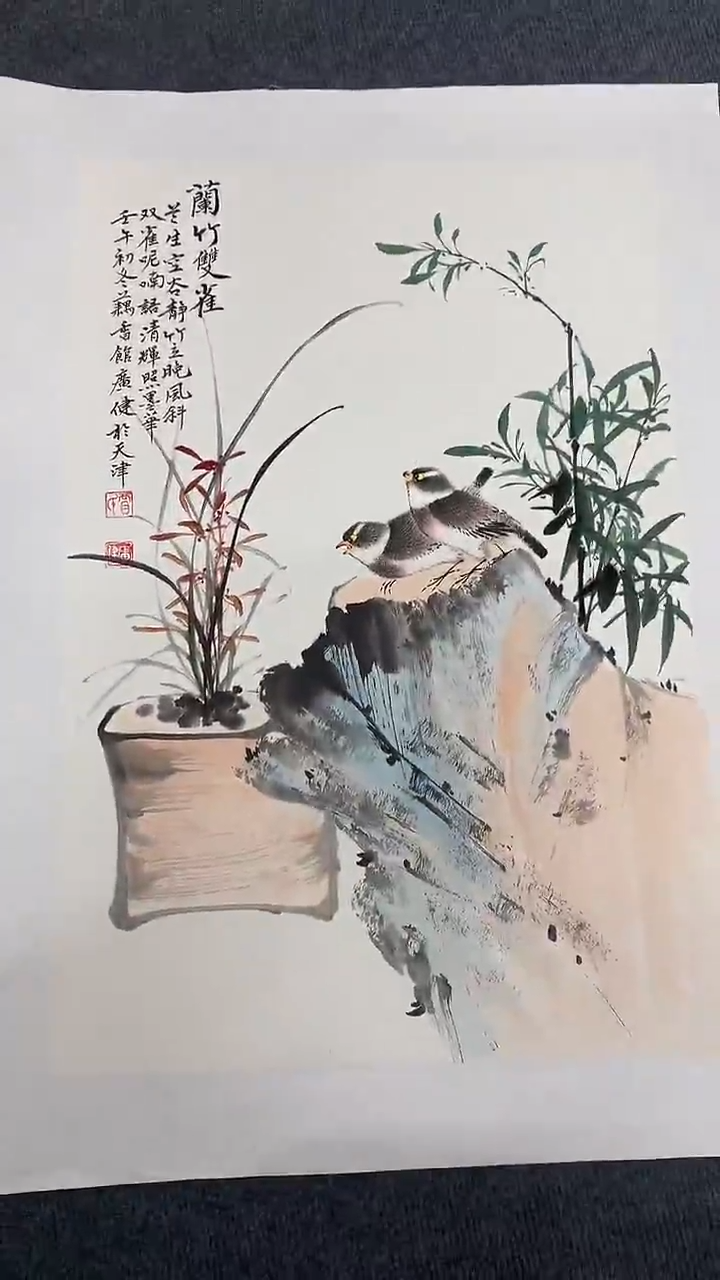 蘭竹雙雀
兰生空谷静竹立晚风斜
双雀呢喃語清輝照墨華
壬午初冬藕香館廣健於天津